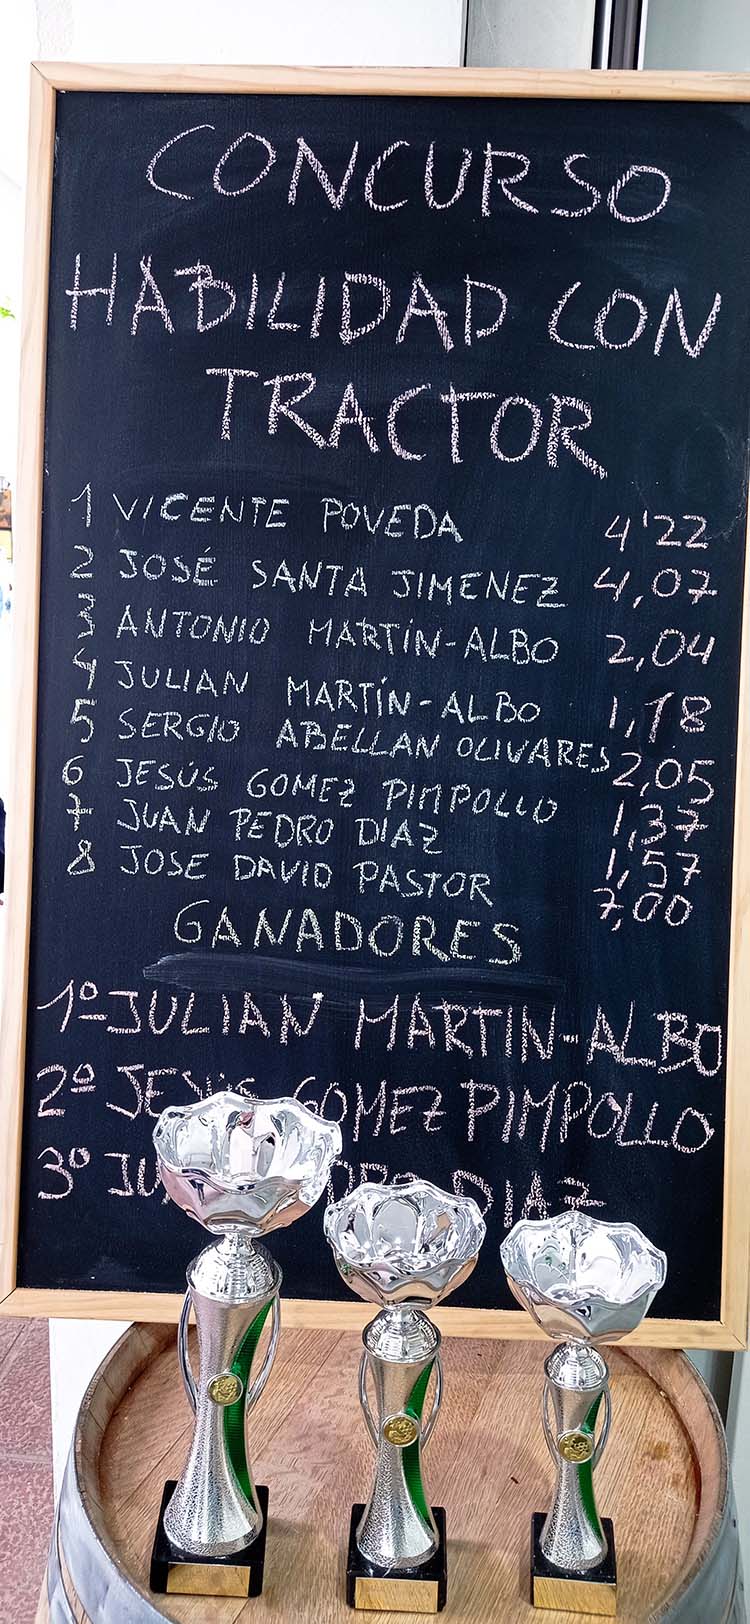 CONCURSO
HABILIDAD CON
TRACTOR
1 VICENTE POVEDA 4'22
2 JOSÉ SANTA JIMENEZ 4,07
3 ANTONIO MARTÍN-ALBO 2,04
4 JULIAN MARTÍN-ALBO 1,18
5 SERGIO ABELLAN OLIVARES 2,05
6 JESÚS GOMEZ PIMPOLLO 1,37
7 JUAN PEDRO DIAZ 1,57
8 JOSE DAVID PASTOR 7,00
GANADORES
1º-JULIAN MARTIN-ALBO
2º JESÚS GOMEZ PIMPOLLO
3º DIAZ